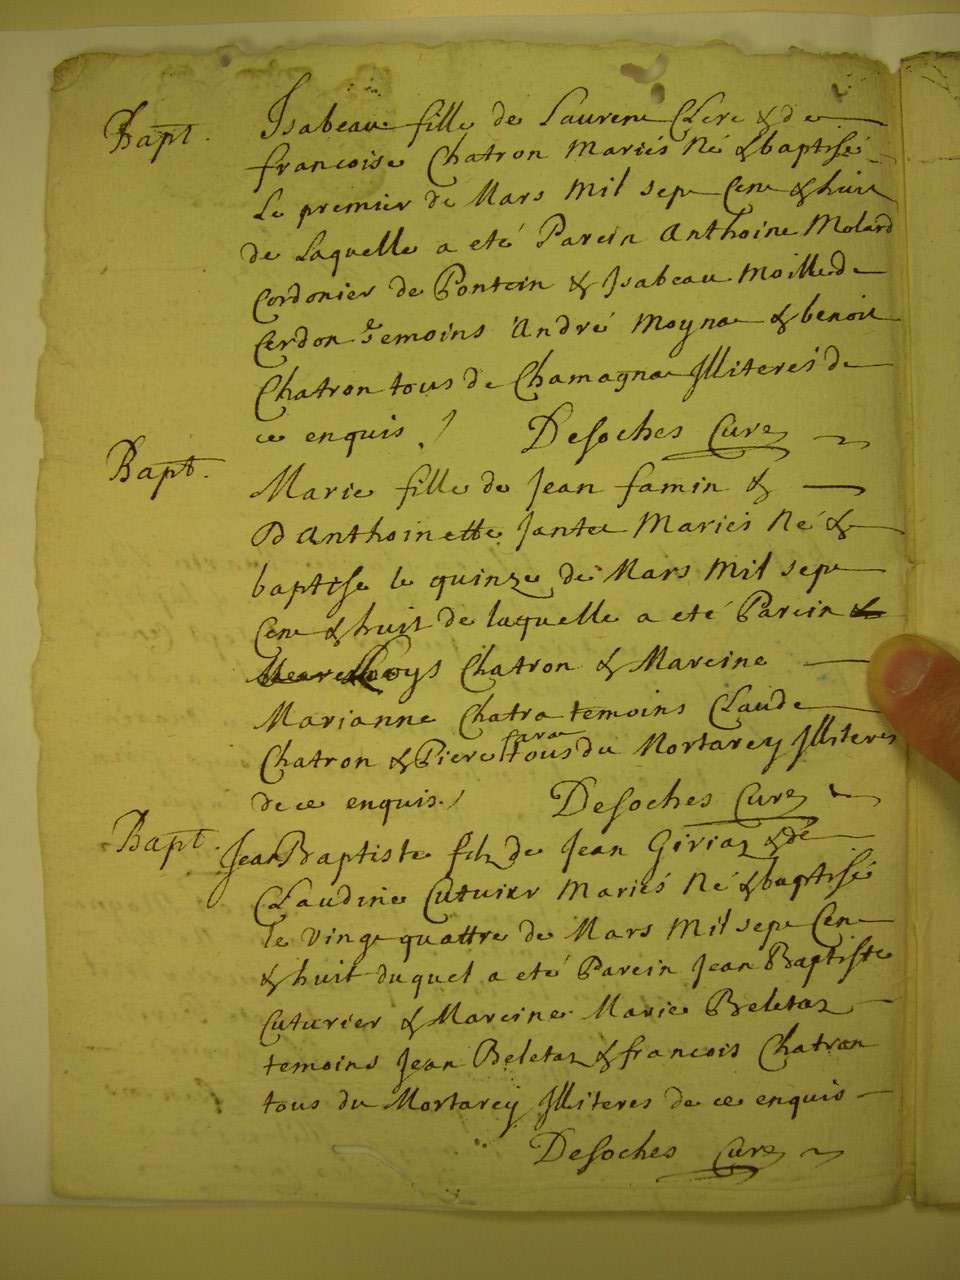 Bapt.
Isabeau fille de Laurent Clerc & de
francoise Chatron Mariés Né & baptisé
Le premier de Mars Mil sept Cent & huit
de Laquelle a eté Parein Anthoine Molard
Cordonier de Pontein & Isabeau Moille de
Cerdon temoins André Moyna & benoit
Chatron tous de Chamagna Illiteres de
ce enquis / Desoches Curé
Bapt.
Marie fille de Jean famin &
D Anthoinette Jantet Mariés Né &
baptise le quinze de Mars Mil sept
Cent & huit de laquelle a eté Parein &
Loys Chatron & Mareine
Marianne Chatra temoins Claude
Chatron & Piere tous du Mortarey Illiteres
de ce enquis / Desoches Curé
Bapt.
Jean Baptiste filz de Jean Giriaz & de
Claudine Cuturier Mariés Né & baptisé
le vingt quattre de Mars Mil sept Cent
& huit duquel a eté Parein Jean Baptiste
Cuturier & Mareine Marie Beletaz
temoins Jean Beletaz & francois Chatron
tous du Mortarey Illiteres de ce enquis
Desoches Curé